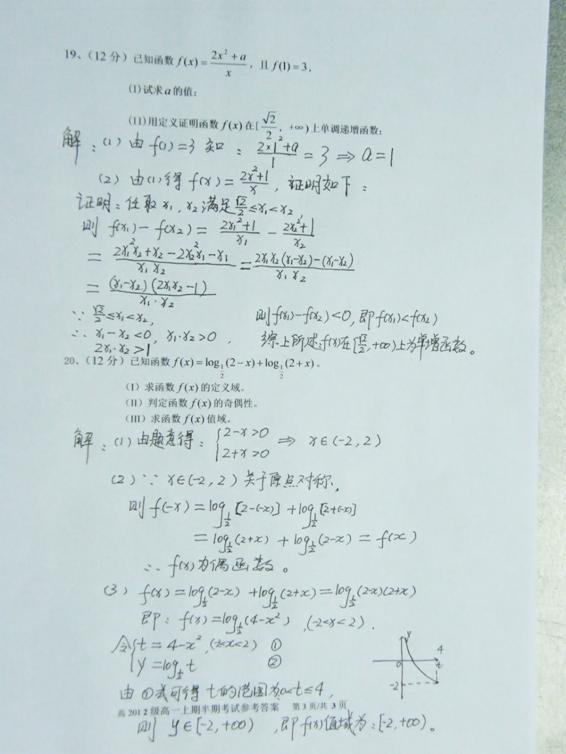 19、（12 分）已知函数 f(x) = (2x² + a)/x ，且 f(1) = 3 .
(I)试求 a 的值;
(II)用定义证明函数 f(x) 在[√2/2 , +∞) 上单调递增函数;
解：(1) 由 f(1)=3 知：(2×1²+a)/1 = 3 ⇒ a=1
(2) 由(1)得 f(x) = (2x²+1)/x，证明如下：
证明：任取 x₁, x₂ 满足 √2/2 ≤ x₁ < x₂
则 f(x₁) - f(x₂) = (2x₁²+1)/x₁ - (2x₂²+1)/x₂
= (2x₁²x₂+x₂-2x₂²x₁-x₁)/(x₁x₂) = (2x₁x₂(x₁-x₂)-(x₁-x₂))/(x₁x₂)
= (x₁-x₂)(2x₁x₂-1)/(x₁·x₂)
∵ √2/2 ≤ x₁ < x₂,
∴ x₁-x₂<0, x₁·x₂>0 .
2x₁·x₂>1
则 f(x₁)-f(x₂)<0, 即 f(x₁)<f(x₂)
综上所述 f(x)在[√2/2, +∞)上为单增函数。
20、（12 分）已知函数 f(x) = log_{1/2}(2-x) + log_{1/2}(2+x) 。
(I) 求函数 f(x) 的定义域。
(II) 判定函数 f(x) 的奇偶性。
(III) 求函数 f(x) 值域。
解：(1) 由题意得：{2-x>0 2+x>0 ⇒ x∈(-2, 2)
(2) ∵ x∈(-2, 2) 关于原点对称,
则 f(-x) = log_{1/2}[2-(-x)] + log_{1/2}[2+(-x)]
= log_{1/2}(2+x) + log_{1/2}(2-x) = f(x)
∴ f(x)为偶函数。
(3) f(x) = log_{1/2}(2-x) + log_{1/2}(2+x) = log_{1/2}(2-x)(2+x)
即：f(x) = log_{1/2}(4-x²) , (-2<x<2) .
令{t = 4-x², (-2<x<2) ①
y = log_{1/2} t ②
y
0
4
t
-2
由①式可得 t 的范围为 0<t≤4,
高 2012 级高一上期半期考试参考答案 第 3 页/共 3 页
则 y∈[-2, +∞) , 即 f(x)值域为：[-2, +∞)。